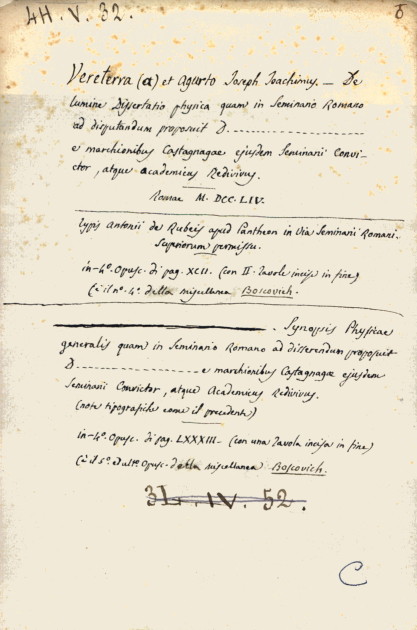 4H. V. 32.
Vereterra (a) et Agurto Joseph Joachimus. — De
lumine Dissertatio physica quam in Seminario Romano
ad disputandum proposuit D. - - - - - - - - - - - - - - - -
e marchionibus Castagnagae ejusdem Seminarii Convi-
ctor, atque academicus Redivivus.
Romae M. DCC. LIV.
typis Antonii de Rubeis apud Pantheon in Via Seminarii Romani.
Superiorum permissu.
in-4º. Opusc. di pag. XCII. (con II. Tavole incise in fine)
(è il nº. 4º. della miscellanea Boscovich.
. Synopsis Physicae
generalis quam in Seminario Romano ad disserendum proposuit
D. - - - - - - - - - - - - - - e marchionibus Castagnagae ejusdem
Seminarii Convictor, atque Academicus Redivivus.
(note tipografiche come il precedente)
in-4º. Opusc. di pag. LXXXIII - (con una Tavola incisa in fine)
(è il 5º. ed ultº. Opusc. della miscellanea Boscovich.
3L. IV. 52.
C